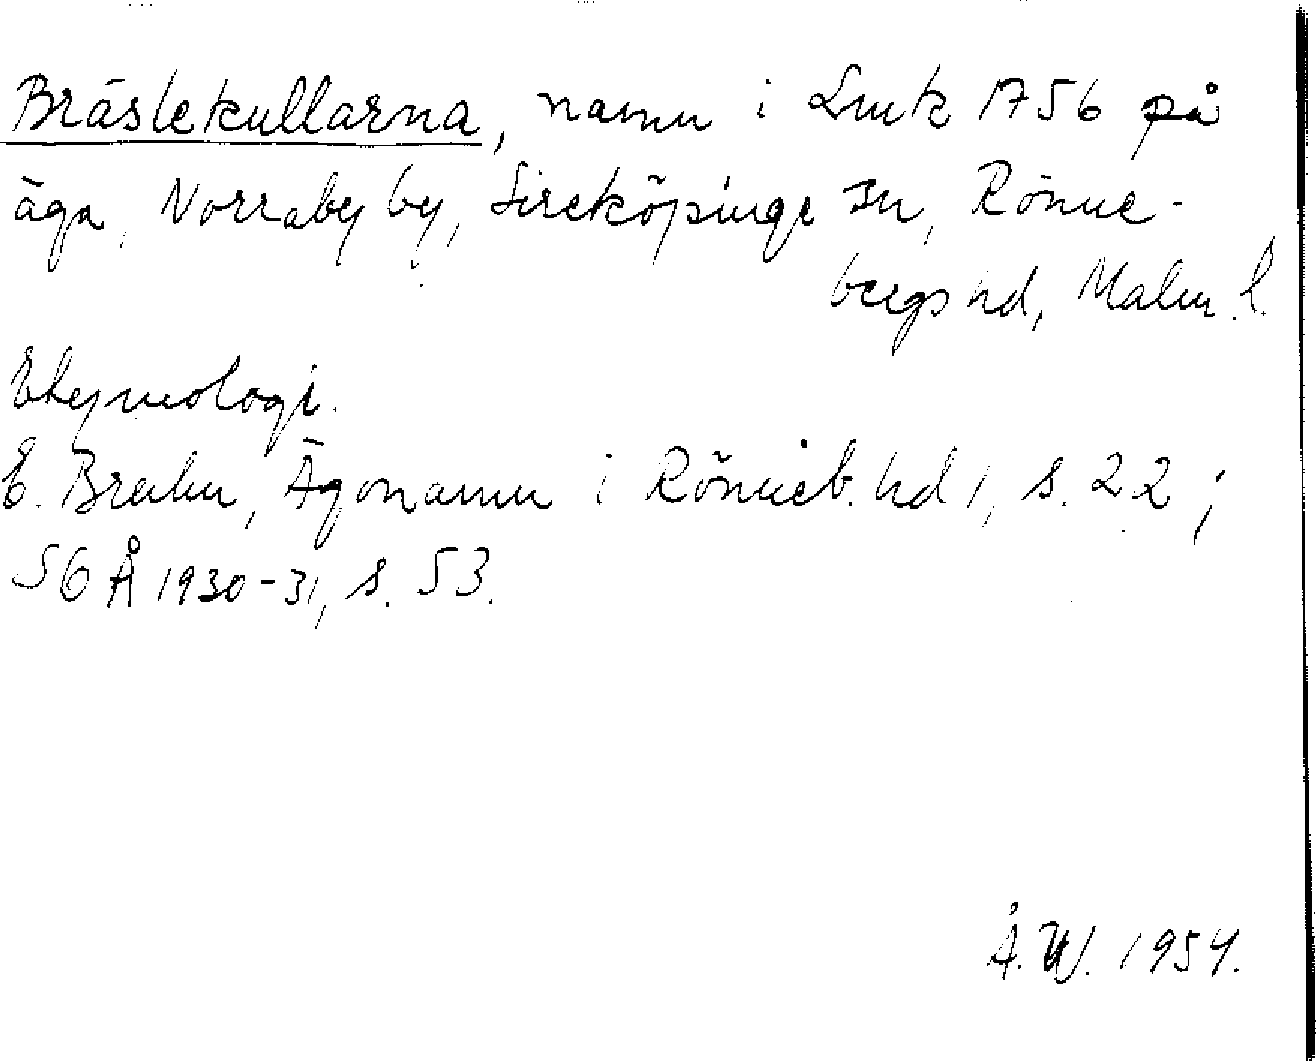 Bräslekullarna, namn i Lmk 1756 på
äga, Norraby by, Sireköpinge sn, Rönne-
bergs hd, Malm. l.
Etymologi.
E. Bruhn, Ägonamn i Rönneb. hd 1, s. 22;
SGÅ 1930-31, s. 53.
Å. W. 1954.